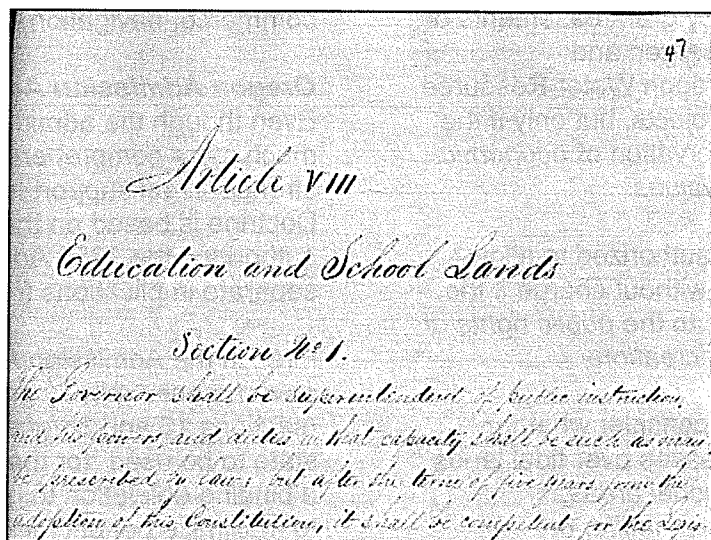 47
Article VIII
Education and School Lands
Section No 1.
The Governor shall be superintendent of public instruction,
and his powers, and duties in that capacity shall be such as may
be prescribed by law; but after the term of five years from the
adoption of this Constitution, it shall be competent for the Legis-